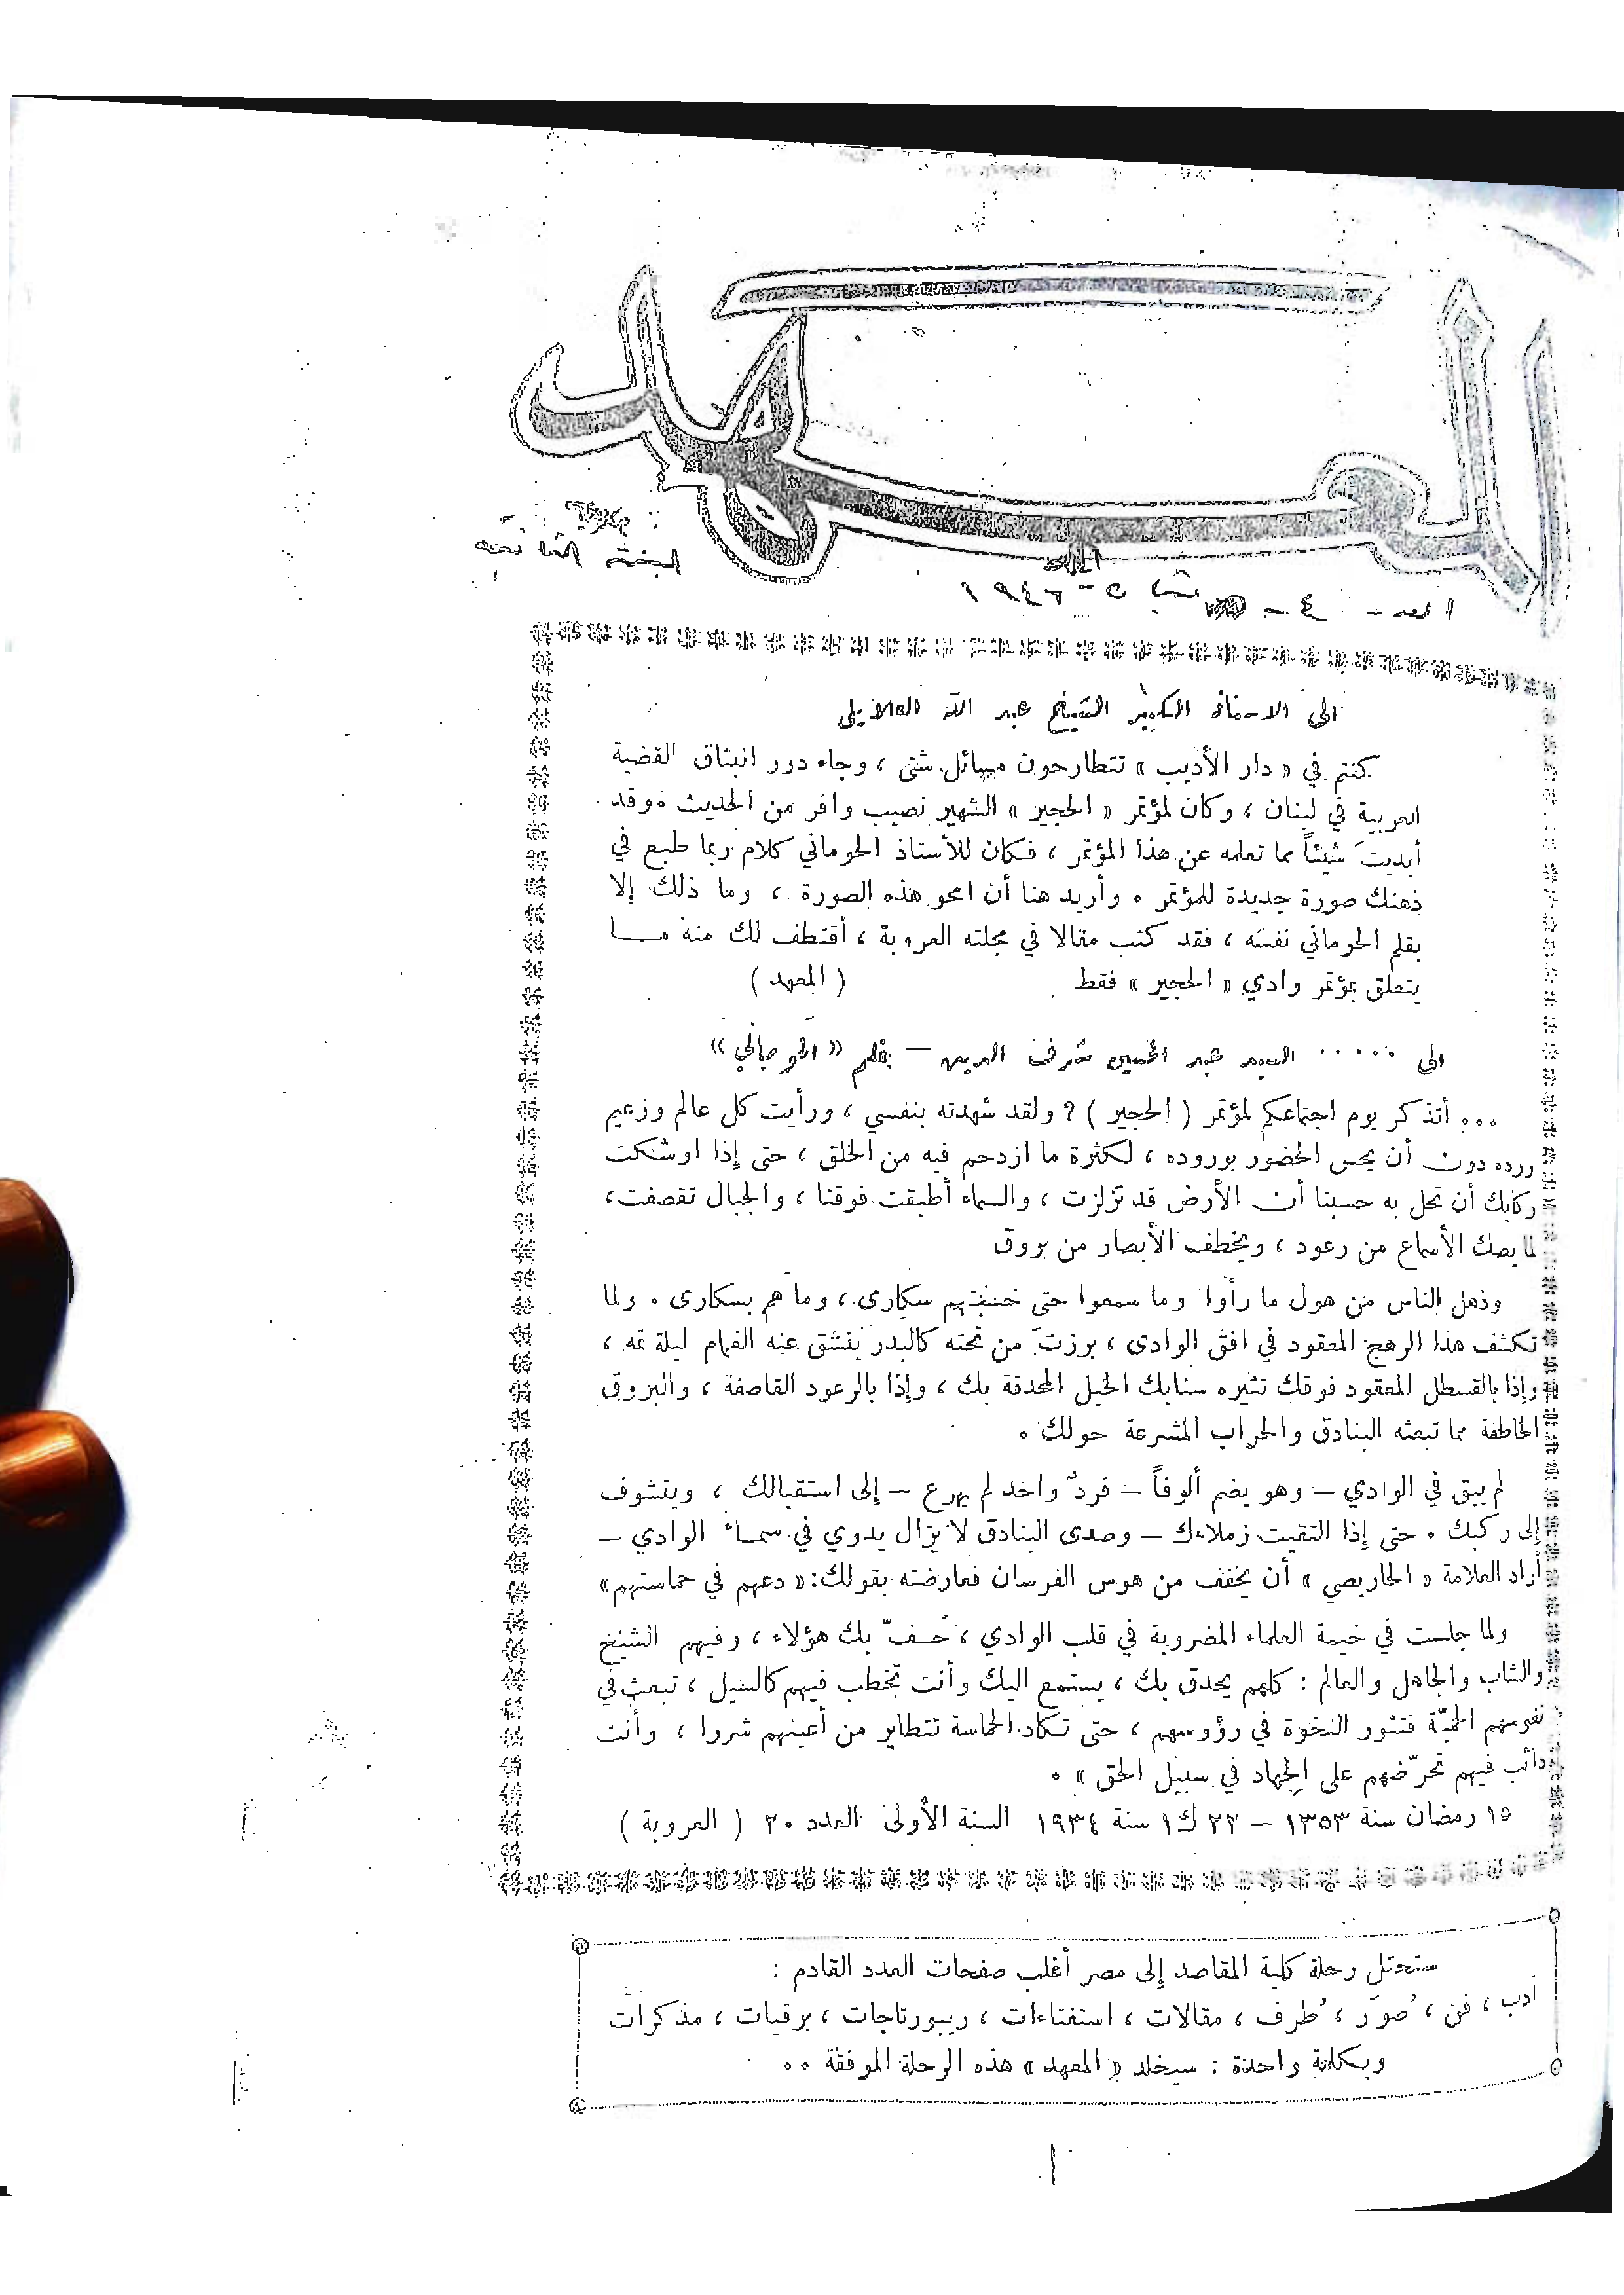 المعهد
السنة الثانية
العدد ٤ - ١٩٤٦
الى الاستاذ الكبير الشيخ عبد الله العلايلي
كنتم في « دار الأديب » تتطارحون مسائل شتى ، وجاء دور انبثاق القضية
العربية في لبنان ، وكان لمؤتمر « الحجير » الشهير نصيب وافر من الحديث . وقد
أبديتَ شيئاً مما تعلمه عن هذا المؤتمر ، فكان للأستاذ الحوماني كلام ربما طبع في
ذهنك صورة جديدة للمؤتمر . وأريد هنا أن امحو هذه الصورة ، وما ذلك إلا
بقلم الحوماني نفسه ، فقد كتب مقالا في مجلته العروبة ، أقتطف لك منه مــا
يتعلق بمؤتمر وادي « الحجير » فقط ( المعهد )
الى ..... السيد عبد الحسين شرف الدين — بقلم « الحوماني »
... أتذكر يوم اجتماعكم لمؤتمر ( الحجير ) ? ولقد شهدته بنفسي ، ورأيت كل عالم وزعيم
ورده دون أن يحس الحضور بوروده ، لكثرة ما ازدحم فيه من الخلق ، حتى إذا اوشكت
ركابك أن تحل به حسبنا أن الأرض قد تزلزت ، والسماء أطبقت فوقنا ، والجبال تقصفت،
لما يصك الأسماع من رعود ، ويخطف الأبصار من بروق
وذهل الناس من هول ما رأوا وما سمعوا حتى خفتهم سكارى ، وما هم بسكارى . ولما
تكشف هذا الرهج المعقود في افق الوادى ، برزتَ من تحته كالبدر ينشق عنه الغمام ليلة تمه ،
وإذا بالقسطل المعقود فوقك تثيره سنابك الخيل المحدقة بك ، وإذا بالرعود القاصفة ، والبروق
الخاطفة مما تبعثه البنادق والحراب المشرعة حولك .
لم يبق في الوادي — وهو يضم ألوفاً — فردٌ واحد لم يهرع — إلى استقبالك ، ويتشوف
إلى ركبك . حتى إذا التقيت زملاءك — وصدى البنادق لا يزال يدوي في سماء الوادي —
أراد العلامة « الحاريصي » أن يخفف من هوس الفرسان فعارضته بقولك: « دعهم في حماستهم»
ولما جلست في خيمة العلماء المضروبة في قلب الوادي ، حُـفّ بك هؤلاء ، وفيهم الشيخ
والشاب والجاهل والعالم : كلهم يحدق بك ، يستمع اليك وأنت تخطب فيهم كالسيل ، تبعث في
نفوسهم الحميّة فتثور النخوة في رؤوسهم ، حتى تكاد الحماسة تتطاير من أعينهم شررا ، وأنت
دائب فيهم تحرّضهم على الجهاد في سبيل الحق » .
١٥ رمضان سنة ١٣٥٣ — ٢٢ ك١ سنة ١٩٣٤ السنة الأولى العدد ٢٠ ( العروبة )
ستحتل رحلة كلية المقاصد إلى مصر أغلب صفحات العدد القادم :
أدب ، فن ، صُوَر ، طُرف ، مقالات ، استفتاءات ، ريبورتاجات ، برقيات ، مذكرات
وبكلمة واحدة : سيخلد « المعهد » هذه الرحلة الموفقة ..